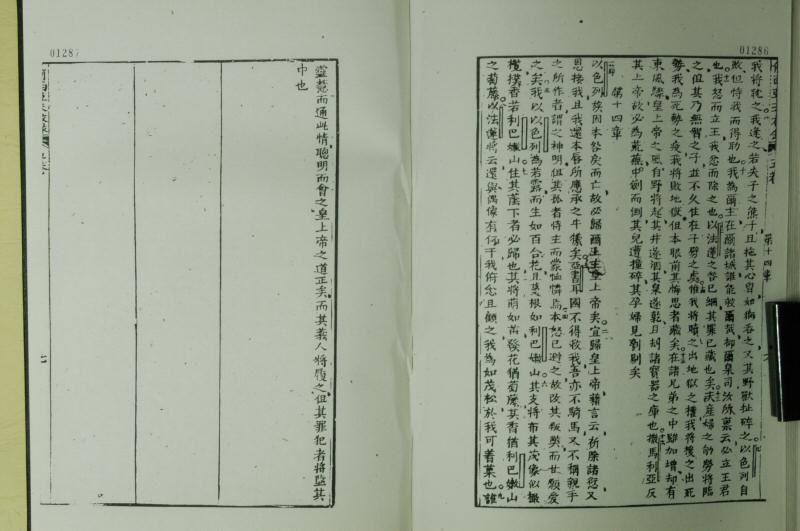 01286
第十四章
我將扰之我逢之若失子之熊子且拖其心胷如獅吞之又其野獸扯碎之以色列自
敗但恃我而得助也我為爾王在爾諸城誰能救爾哉
也我怒而立王我忿而除之也以法蓮之咎已綑其罪已藏也矣沃産婦之劬勞將臨
之但其乃無智之子並不久住在子劈之處惟我將贖之出地獄之權我將
勢我為死勢之疫我將敗地獄但本眼前其悔思者藏矣在諸兄弟之中雖加增却有
東風驟皇上帝之風自野將起其井遂涸其泉遂乾且胡諸寶器之庫也撒馬利亞反
其上帝故必為荒蕪中劍而倒其兒遭撞碎其孕婦見剖剔矣
第十四章
以色列族因本咎戾而亡故必歸爾主皇上帝矣宜歸皇上帝藉言云祈除諸愆又
恩接我且我還本唇所應承之牛犢矣亞書耳國不得救我吾亦不騎馬又不稱親手
之所作者謂之神明但其孤者恃主而蒙恤憐焉本怒已避之故改其叛獘而甘願愛
之矣我以以色列為若露而生如百合花且其根如利巴嫩山其支將布其茂像似橄
欖撲香若利巴嫩山住其蔭下者必歸也其將萌如苗發花猶葡蔴其香猶利巴嫩山
之萄蔴以法蓮將云還與偶像有何干我俯念且顧之我為如茂松於我可着菓也誰
01287
靈慧而通此情聰明而會之皇上帝之道正矣而其義人將履之但其罪犯者將墜其
中也
七